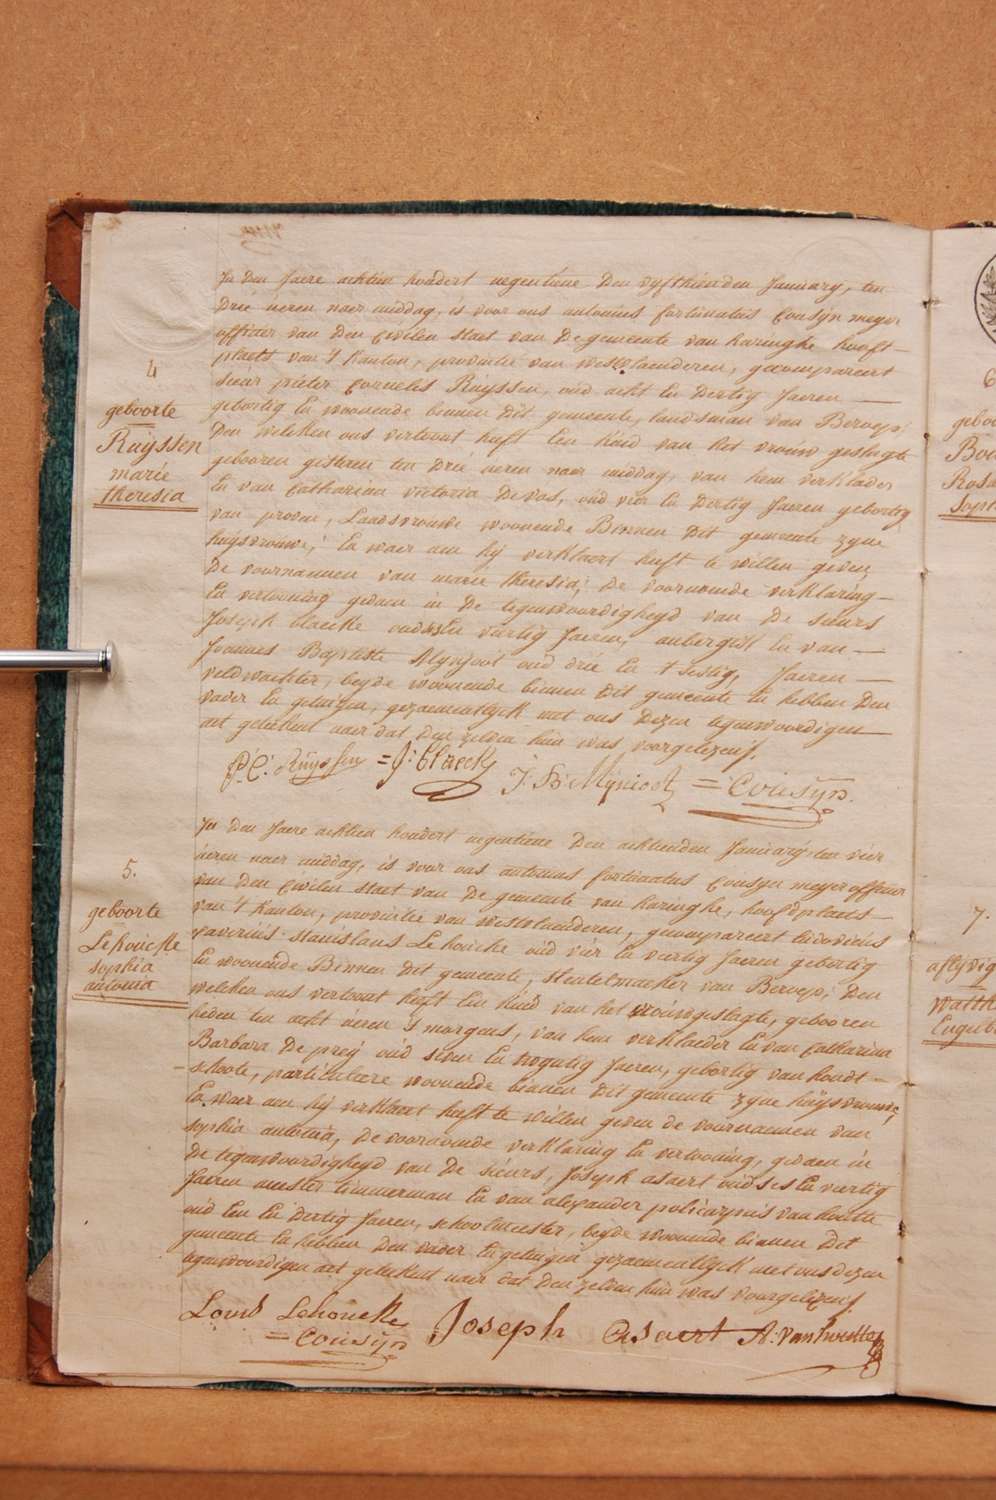 4
geboorte
Ruÿssen
marie
theresia
In den Jaere achtien hondert negentiene den vyfthienden January, ten
drie ueren naer middag, is voor ons antonius fortunatus Cousyn meyer
officier van den Civilen staet van de gemeente van haringhe hooft-
plaets van 't kanton, provintie van westvlaenderen, gecompareert
sieur pieter Cornelis Ruyssen, oud acht en dertig Jaeren
gebortig en woonende binnen dit gemeente, landsman van Beroep;
den welcken ons vertoont heeft een kind van het vrouw geslagte
gebooren gisteren ten drie ueren naer middag, van hem verklaeder
en van Catharina victoria Devos, oud vier en dertig Jaeren gebortig
van proven, Landsvrouwe woonende Binnen dit gemeente zyne
huysvrouwe; En waer aen hy verklaert heeft te willen geven
de voornaemen van marie theresia; de voornoemde verklaring
En vertooning gedaen in de tegenwoordigheyd van de sieurs
Joseph blaecke oud en viertig Jaeren, aubergist en van
Joannes Baptiste Mynjoot oud drie en t'sestig, Jaeren
veldwachter, beyde woonende binnen dit gemeente en hebben den
vader en getuigen, gezaementlyck met ons dezen tegenwoordigen
act geteekent naer dat den zelven hun was voorgelezen.
P: C: Ruÿssen = J: Blaecke J: B: Mynioot = Cousÿn.
5.
geboorte
Lehoucke
sophia
antonia
In den Jaere achtien hondert negentiene den achtienden January, ten vier
ueren naer middag, is voor ons antonius fortunatus Cousyn meyer officier
van den Civilen staet van de gemeente van haringhe, hoofdplaets
van 't kanton, provintie van westvlaenderen, gecompareert Ludovicus
Xaverius stanislaus Lehoucke oud vier en veertig Jaeren gebortig
en woonende Binnen dit gemeente, sleutelmaeker van Beroep; den
welcken ons vertoont heeft een kind van het vrouwgeslagte, gebooren
heden ten acht ueren 's morgens, van hem verklaeder en van Catharina
Barbara De preÿ oud seven en Jaeren, gebortig van hondt-
schoote, particuliere woonende binnen dit gemeente zyne huÿsvrouwe,
En waer aen hy verklaert heeft te willen geven de voornaemen van
sophia antonia, de voornoemde verklaring en vertooning, gedaen in
de tegenwoordigheyd van de sieurs, Joseph asaert oud ses en veertig
Jaeren meester timmerman en van alexander policarpus van houtte
oud een en dertig Jaeren, schoolmeester, beyde woonende binnen dit
gemeente en hebben den vader en getuigen gezaementlyck met ons dezen
tegenwoordigen act geteekent naer dat den zelven hun was voorgelezen.
Louis Lehoucke Joseph Asaert A:
= Cousÿn
geboo
Bou
Rosa
Soph
7.
aflyvig
Watth
Engelb